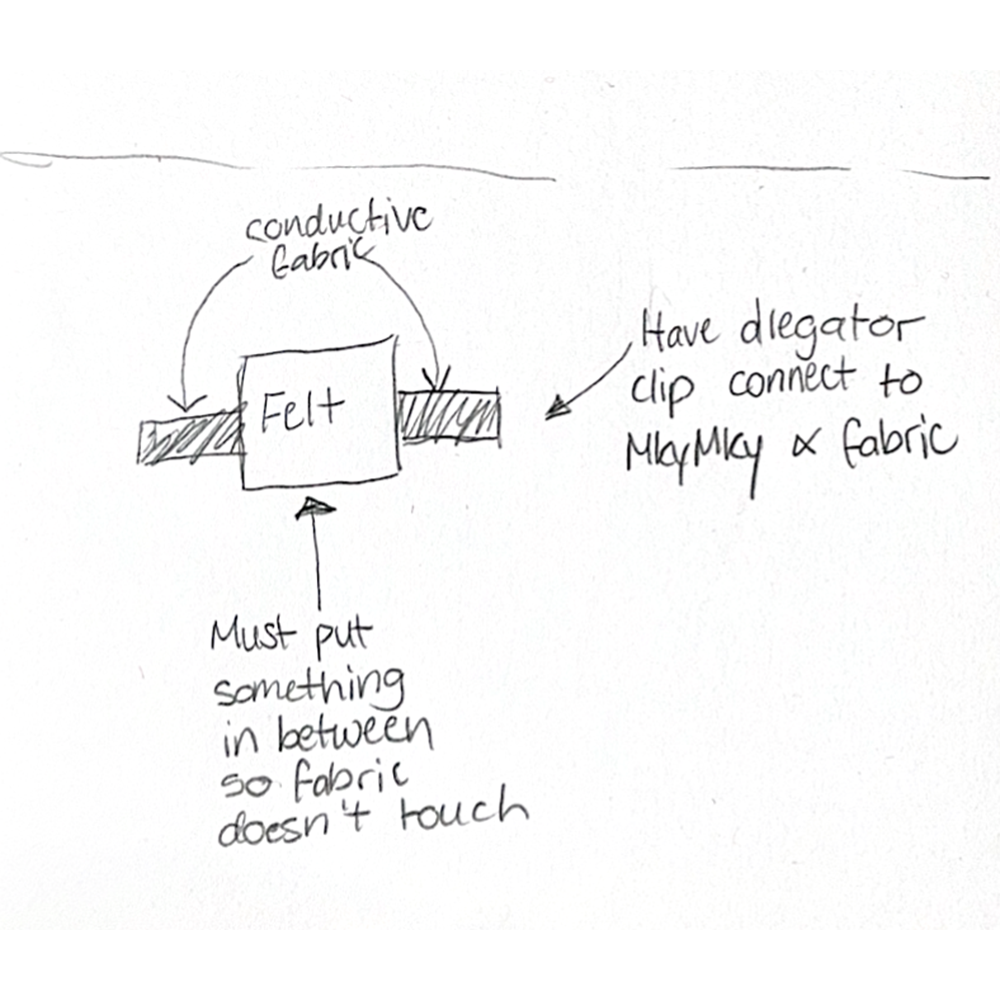 conductive
fabric
Felt
Have dlegator
clip connect to
MkyMky & fabric
Must put
something
in between
so fabric
doesn't touch